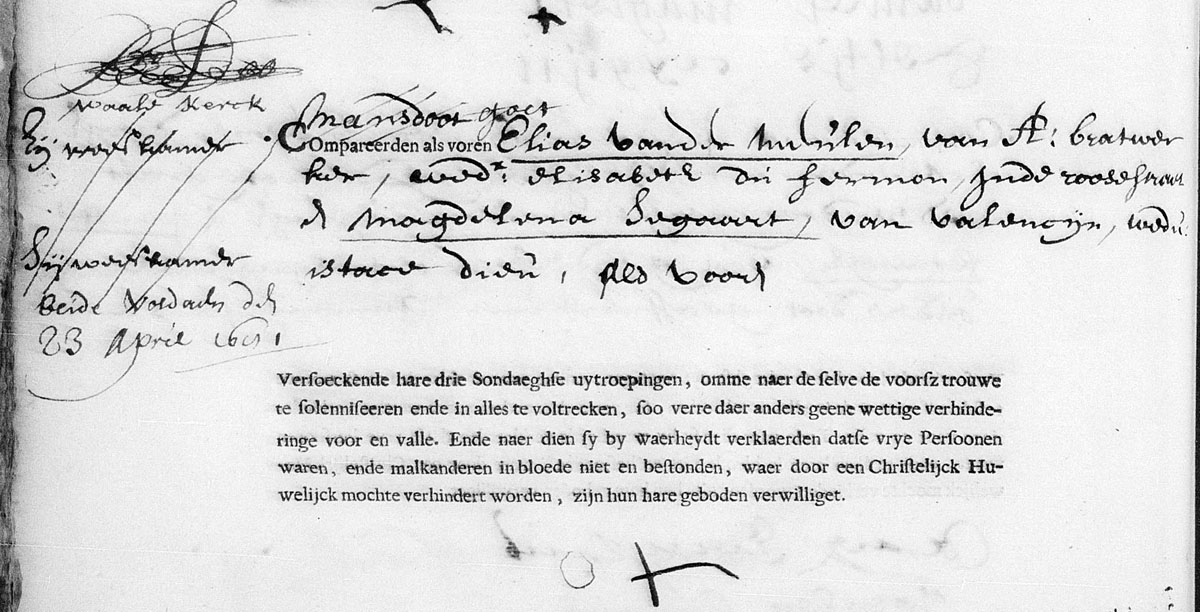 Waale Kerck
Hij weeskamer
Sij weeskamer
beide voldaen den
23 April 1651
Mansdoot goet
Compareerden als voren Elias vander Meulen, van A: bratwer
ker, wedr: Elisabeth du hermon, inde roosestraat
en Magdelena Segaart, van Valencijn, wedu:
istace dieu, als vooren
Versoeckende hare drie Sondaeghse uytroepingen, omme naer de selve de voorsz trouwe
te solenniseeren ende in alles te voltrecken, soo verre daer anders geene wettige verhinde-
ringe voor en valle. Ende naer dien sy by waerheydt verklaerden datse vrye Persoonen
waren, ende malkanderen in bloede niet en bestonden, waer door een Christelijck Hu-
welijck mochte verhindert worden, zijn hun hare geboden verwilliget.